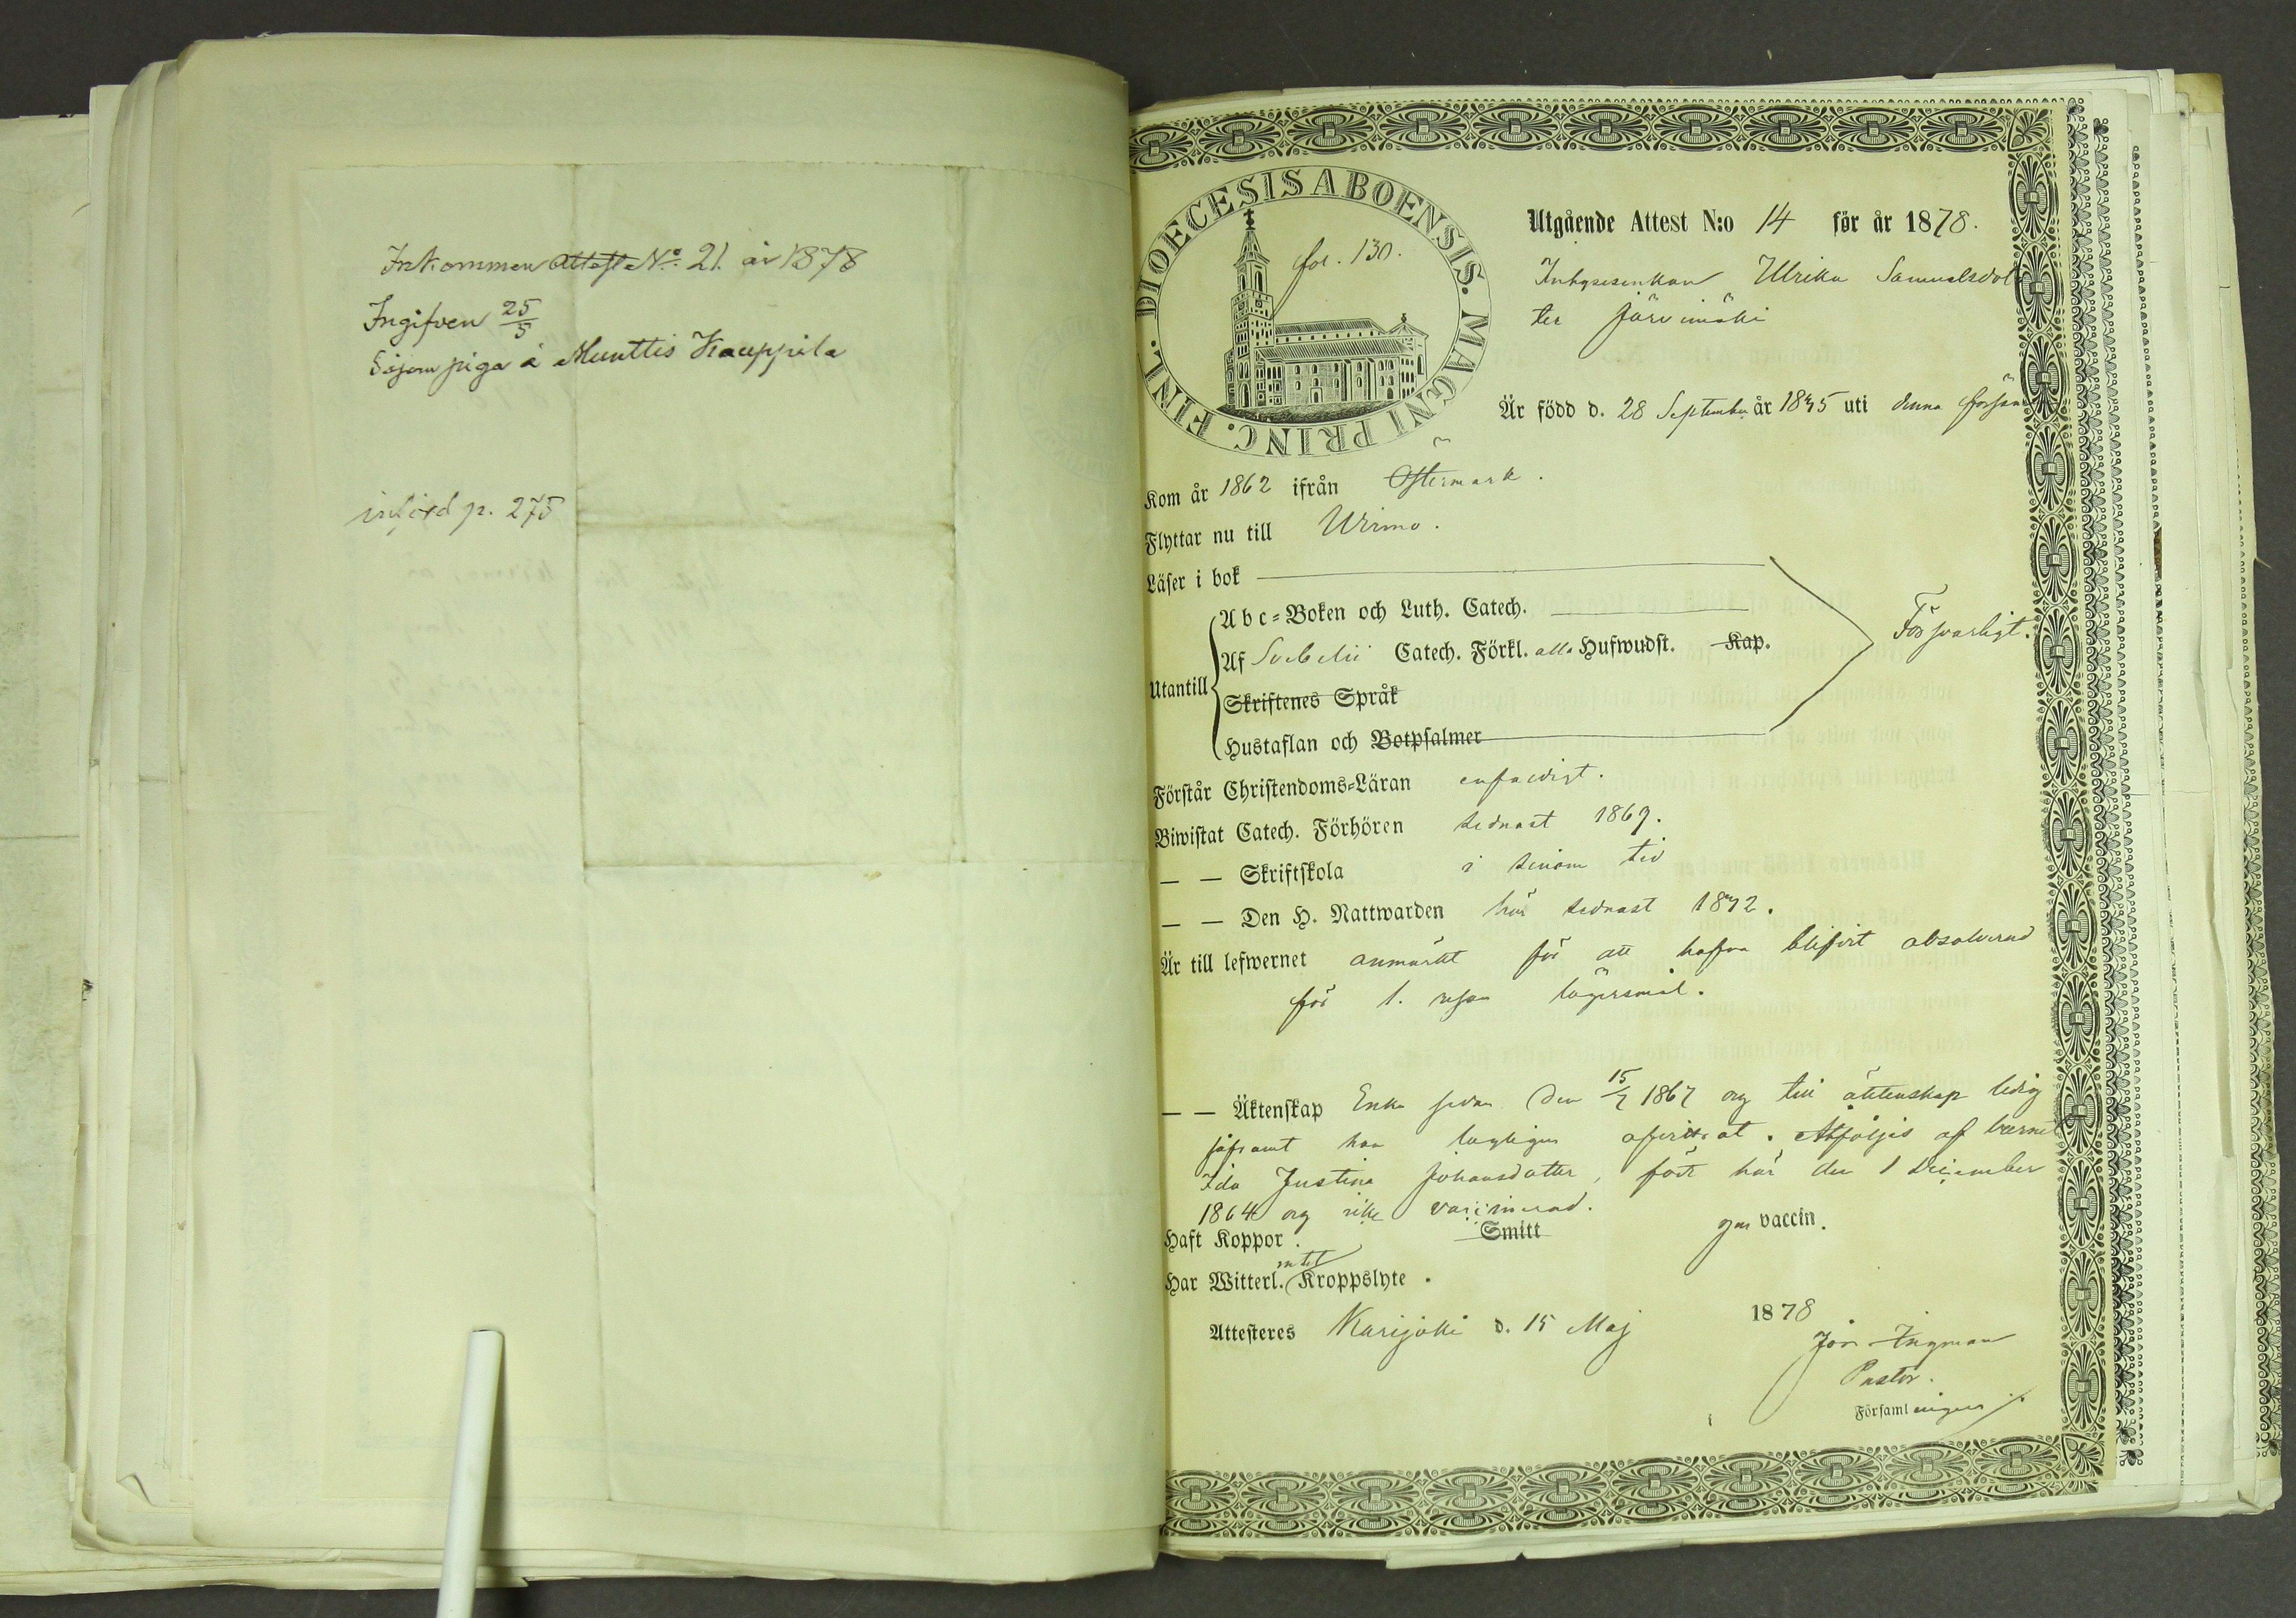 Inkommen Attest No. 21. år 1878
Ingifven 25/5
Såsom piga å Munttis Kauppila
införd p. 275
DIOECESIS ABOENSIS. MAGNI PRINC. FINL.
fol. 130.
Utgående Attest N:o 14 för år 1878.
Inhysesenkan Ulrika Samuelsdot
ter Järvimäki
Är född d. 28 September år 1835 uti denna försam
Kom år 1862 ifrån Östermark.
Flyttar nu till Wirmo.
Läser i bok
Abc-Boken och Luth. Catech.
Utantill Af Svebelii Catech. Förkl. alla Hufwudst. Kap. Försvarligt.
Skriftenes Språk
Hustaflan och Botpsalmer
Förstår Christendoms-Läran enfaldigt.
Biwistat Catech. Förhören sednast 1869.
— — Skriftskola i sinom tid
— — Den H. Nattwarden här sednast 1872.
Är till lefwernet anmärkt för att hafva blifvit absolverad
för 1. resan lägersmål.
— — Äktenskap Enka sedan den 15/7 1867 og till äktenskap ledig
såframt hon lagligen afvittrat. Åtföljes af barnet
Ida Justina Johansdotter, född här den 1 December
1864 og icke vaccinerad.
Haft Koppor. Smitt gm vaccin.
Har Witterl. intet Kroppslyte.
Attesteres Karijoki d. 15 Maj 1878
Joh. Ingman
Pastor.
Församlingen